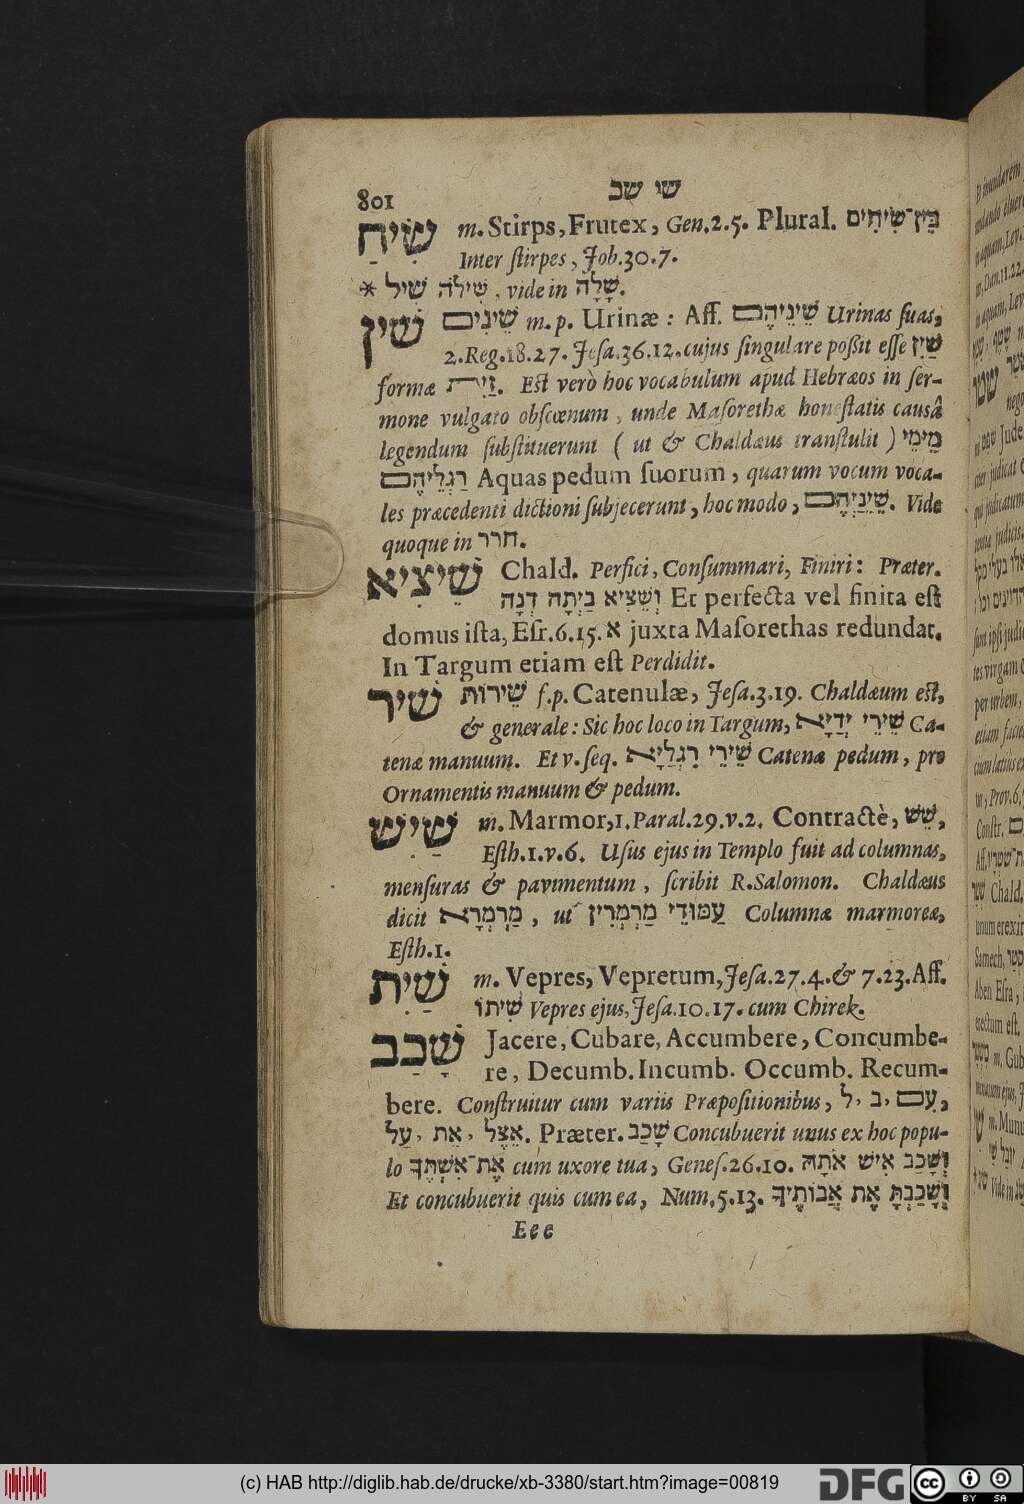 801 שי שכ
שִׂיחַ m. Stirps, Frutex, Gen.2.5. Plural. בֵּין־שִׂיחִים
Inter ſtirpes, Job.30.7.
* שִׁיל שִׁילֹה, vide in שָׁלָה.
שִׁין שֵׁינִים m.p. Urinæ: Aff. שֵׁינֵיהֶם Urinas ſuas,
2.Reg.18.27. Jeſa.36.12. cujus ſingulare poſſit eſſe שַׁיִן
formæ זַיִת. Eſt verò hoc vocabulum apud Hebræos in ſer-
mone vulgato obſcœnum, unde Maſorethæ honeſtatis causâ
legendum ſubſtituerunt (ut & Chaldæus tranſtulit) מֵימֵי
רַגְלֵיהֶם Aquas pedum ſuorum, quarum vocum voca-
les præcedenti dictioni ſubjecerunt, hoc modo, שֵׁינַיְהֶם. Vide
quoque in חרר.
שֵׁיצִיא Chald. Perfici, Conſummari, Finiri: Præter.
וְשֵׁצִיא בַּיְתָה דְנָה Et perfecta vel finita eſt
domus iſta, Eſr.6.15. א juxta Maſorethas redundat.
In Targum etiam eſt Perdidit.
שִׁיר שֵׁירוֹת f.p. Catenulæ, Jeſa.3.19. Chaldæum eſt,
& generale: Sic hoc loco in Targum, שֵׁירֵי יְדַיָּא Ca-
tenæ manuum. Et v. ſeq. שֵׁירֵי רַגְלַיָּא Catenæ pedum, pro
Ornamentis manuum & pedum.
שַׁיִשׁ m. Marmor, 1.Paral.29.v.2. Contractè, שֵׁשׁ,
Eſth.1.v.6. Uſus ejus in Templo fuit ad columnas,
menſuras & pavimentum, ſcribit R.Salomon. Chaldæus
dicit מַרְמְרָא, ut עַמּוּדֵי מַרְמְרִין Columnæ marmoreæ,
Eſth.1.
שַׁיִת m. Vepres, Vepretum, Jeſa.27.4. & 7.23. Aff.
שִׁיתוֹ Vepres ejus, Jeſa.10.17. cum Chirek.
שָׁכַב Jacere, Cubare, Accumbere, Concumbe-
re, Decumb. Incumb. Occumb. Recum-
bere. Conſtruitur cum variis Præpoſitionibus, עִם, ב, ל,
אֵצֶל, אֵת, עַל. Præter. שָׁכַב Concubuerit unus ex hoc popu-
lo אֶת־אִשְׁתֶּךָ cum uxore tua, Geneſ.26.10. וְשָׁכַב אִישׁ אֹתָהּ
Et concubuerit quis cum ea, Num.5.13. וְשָׁכַבְתָּ אֶת אֲבוֹתֶיךָ
Eee
(c) HAB http://diglib.hab.de/drucke/xb-3380/start.htm?image=00819
DFG
cc BY SA